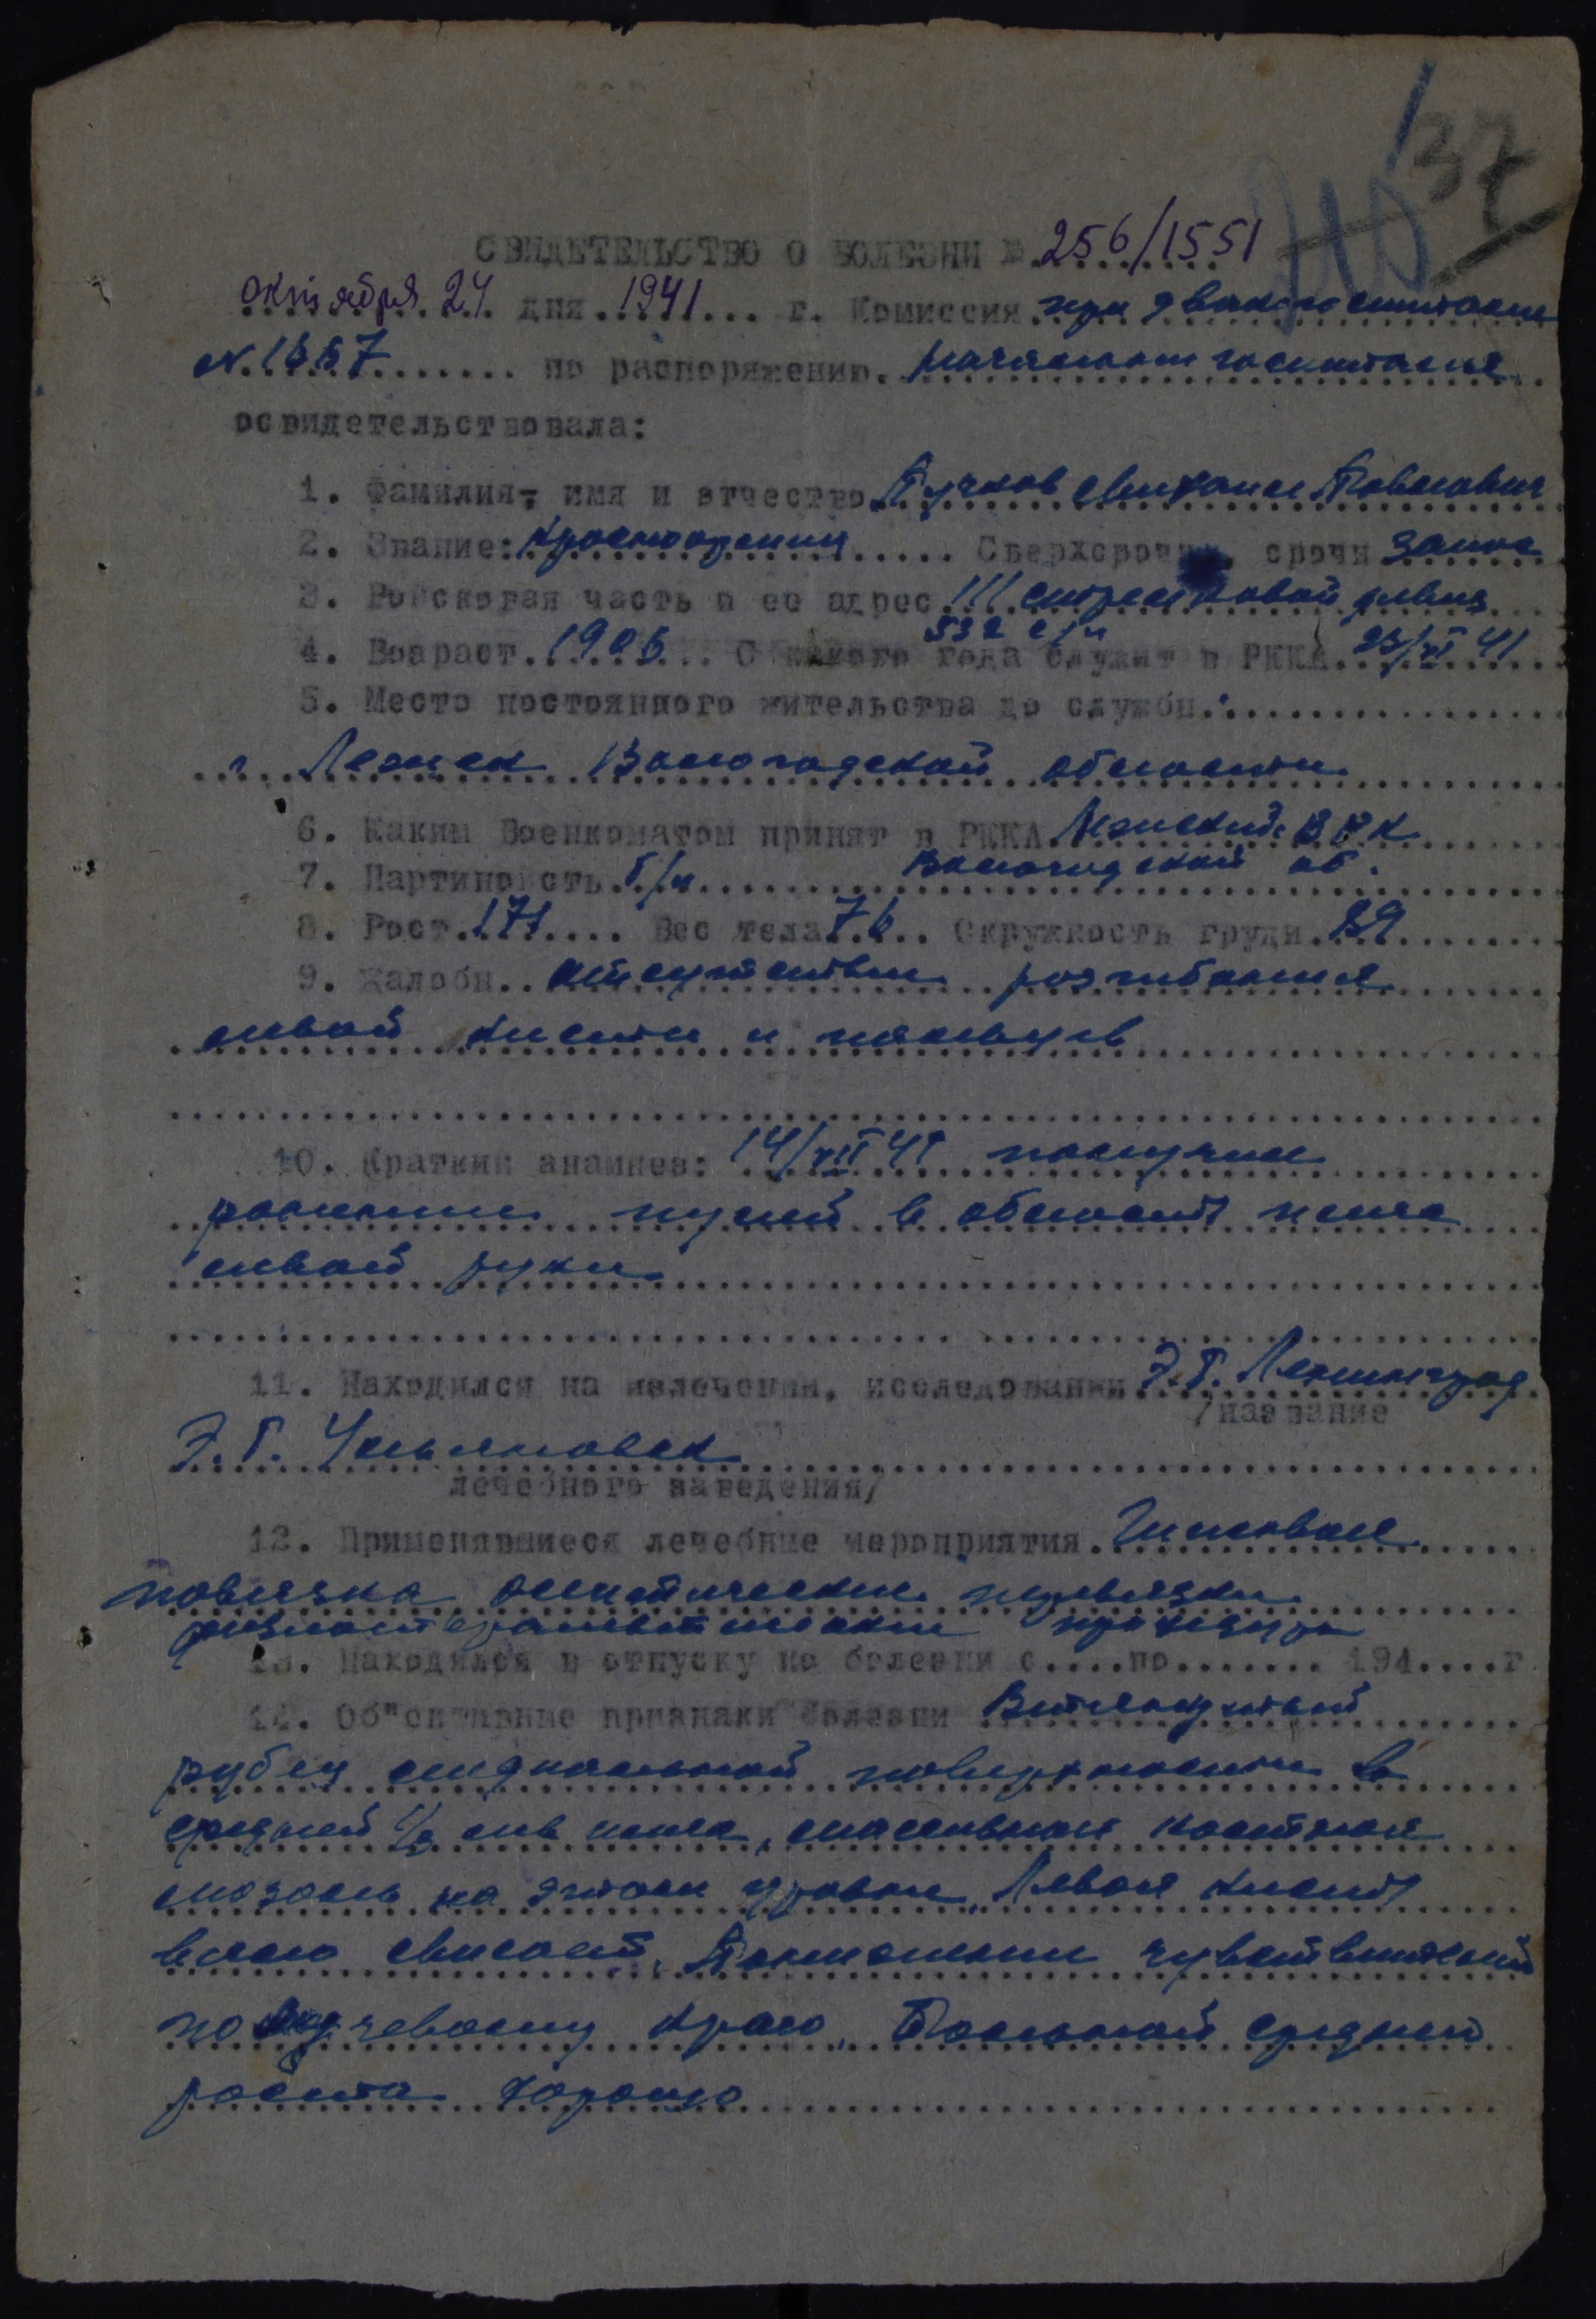 37
СВИДЕТЕЛЬСТВО О БОЛЕЗНИ № 256/1551
октября 24 дня 1941 г. Комиссия при эвакогоспитале
№ 1667 по распоряжению начальника госпиталя
освидетельствовала:
1. Фамилия, имя и отчество Пучков Михаил Павлович
2. Звание: Красноармеец Сверхсрочн, срочн запас
3. Войсковая часть и ее адрес 111 стрелковой дивиз
532 с/п
4. Возраст 1905 С какого года служит в РККА 23/VI 41
5. Место постоянного жительства до службы:
г. Вологодской области
6. Каким Военкоматом принят в РККА РВК
Вологодской об.
7. Партийность б/п
8. Рост 171 Вес тела 76 Окружность груди 89
9. Жалобы отсутствие разгибания
левой кисти и пальцев
10. Краткий анамнез: 14/VII 41 получил
ранение пулей в область плеча
левой руки
11. Находился на излечении, исследовании Э.Г. Ленинград
/название
Э.Г. Ульяновск
лечебного заведения/
12. Применявшиеся лечебные мероприятия Гипсовая
повязка асептические перевязки
физиотерапевтические процедуры
13. Находился в отпуску по болезни с....по....... 194....г
14. Об"ективные признаки болезни Втянутый
рубец медиальной поверхности в
средней 1/3 лев плеча, массивная костная
мозоль на этом уровне. Левая кисть
вяло свисает. Понижение чувствительности
по лучевому краю. Больной средней
роста хорошо